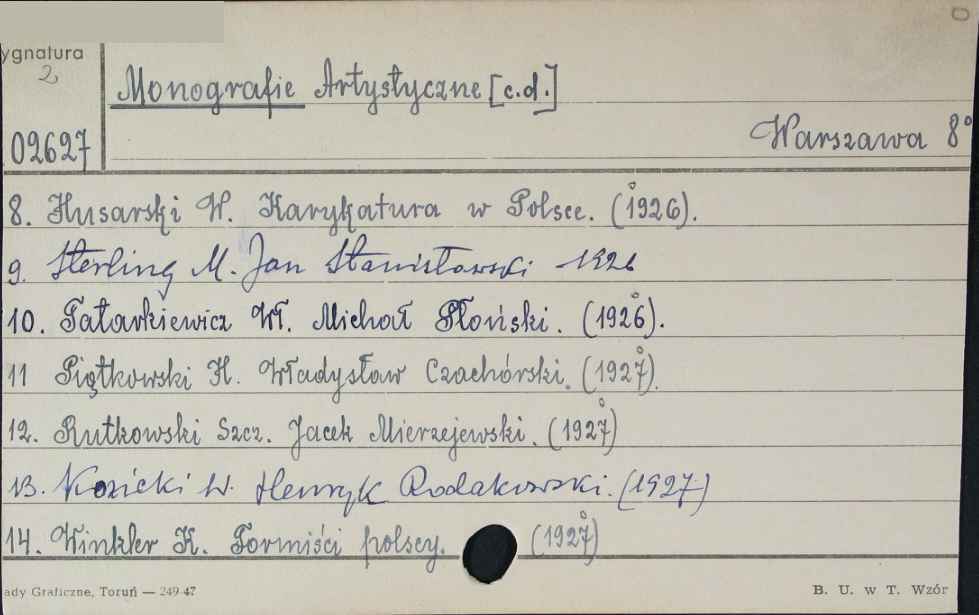 ygnatura
2
Monografie Artystyczne [c.d.]
02627
Warszawa 8°
8. Husarski W. Karykatura w Polsce. (1926).
9. Sterling M. Jan Stanisławski 1926
10. Tatarkiewicz Wł. Michał Płoński. (1926).
11 Piątkowski H. Władysław Czachórski. (1927).
12. Rutkowski Szcz. Jacek Mierzejewski. (1927)
13. Kozicki W. Henryk Rodakowski. (1927)
14. Winkler K. Formiści polscy. (1927)
ady Graficzne, Toruń — 249-47
B. U. w T. Wzór